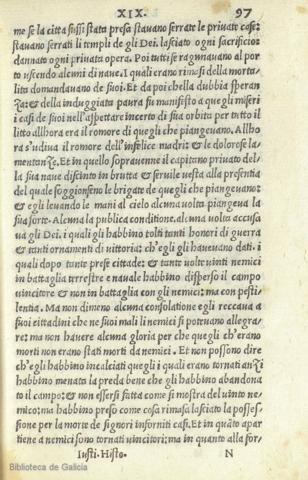 XIX. 97
me se la citta fussi stata presa stavano serrate le private case:
stavano serrati li templi de gli Dei. lasciato ogni sacrificio:
dannato ogni privata opera. Poi tutti se ragunavano al por
to uscendo alcuni di nave. I quali erano rimasi della morta-
lita domandavano de suoi. Et da poi chella dubbia speran
za: & della induggiata paura fu manifesto a quegli miseri
i casi de suoi nell'aspettare incerto di sua orbita per tutto il
litto allhora era il romore di quegli che piangevano. Allho
ra s'udiva il romore dell'infelice madri: & le dolorose la-
mentanze. Et in quello sopravenne il capitano privato del-
la sua nave discinto in brutta & servile vesta alla presentia
del quale soggionseno le brigate de quegli che piangevano:
& egli levando le mani al cielo alcuna volta piangeva la
sua sorte. Alcuna la publica conditione. alcuna volta accusa
va gli Dei. i quali gli habbino tolti tanti honori di guerra
& tanti ornamenti di vittoria: ch'egli gli havevano dati. i
quali dopo tante prese cittade: & tante volte vinti nemici
in battaglia terrestre e navale habbino disperso il campo
vincitore & non in battaglia con gli nemici: ma con pesti-
lentia. Ma non dimeno alcuna consolatione egli receava a
suoi cittadini che ne suoi mali li nemici si potevano allegra-
re: ma non havere alcuna gloria per che quegli ch'erano
morti non erano stati morti da nemici. Et non possono dire
ch'egli habbino incalciati quegli i quali erano tornati anzi
habbino menata la preda bene che gli habbino abandona
to il campo: & non essersi fatta come si mostra del vinto ne-
mico: ma habbino preso come cosa rimasa lasciato la posses-
sione per la morte de signori inforniti casi. Et in quato apar
tiene a nemici sono tornati vincitori: ma in quanto alla for-
Iusti. Histo. N
Biblioteca de Galicia